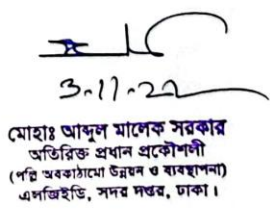 3-11-22
মোহাঃ আব্দুল মালেক সরকার
অতিরিক্ত প্রধান প্রকৌশলী
(পল্লি অবকাঠামো উন্নয়ন ও ব্যবস্থাপনা)
এলজিইডি, সদর দপ্তর, ঢাকা।